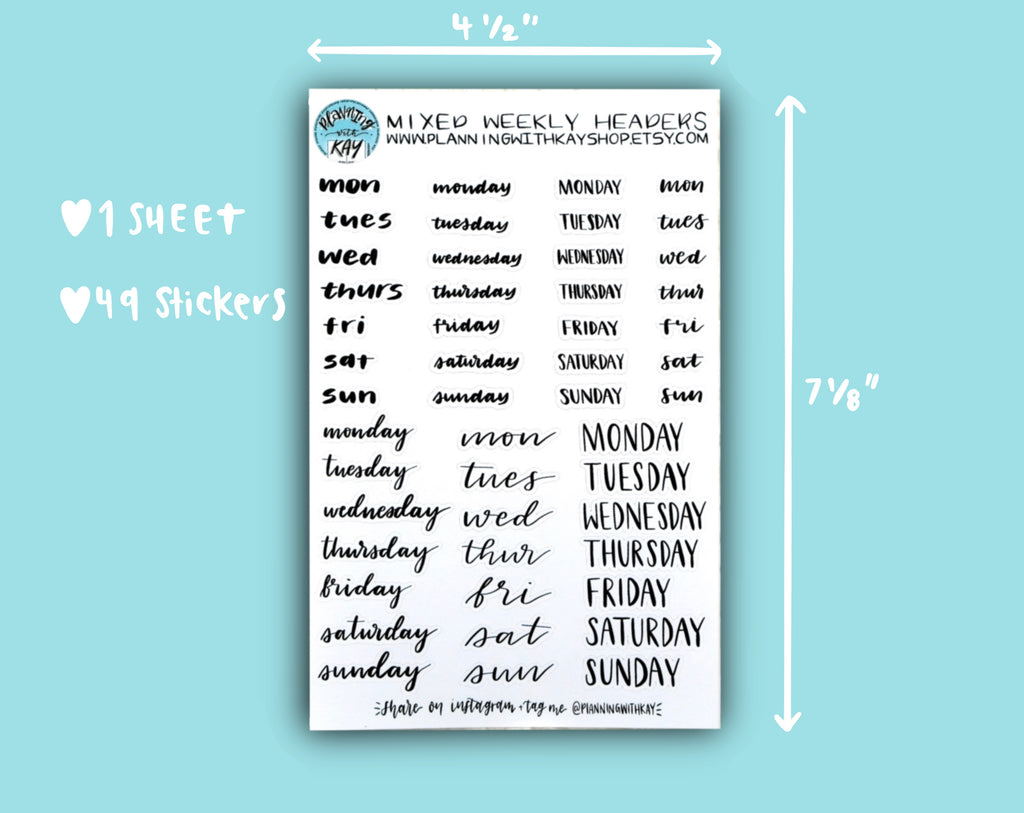 4 ½"
PLANNING
with
KAY
MIXED WEEKLY HEADERS
WWW.PLANNINGWITHKAYSHOP.ETSY.COM
♥1 SHEET
♥49 Stickers
7 ⅛"
mon monday MONDAY mon
tues tuesday TUESDAY tues
wed wednesday WEDNESDAY wed
thurs thursday THURSDAY thur
fri friday FRIDAY fri
sat saturday SATURDAY sat
sun sunday SUNDAY sun
monday mon MONDAY
tuesday tues TUESDAY
wednesday wed WEDNESDAY
thursday thur THURSDAY
friday fri FRIDAY
saturday sat SATURDAY
sunday sun SUNDAY
share on instagram + tag me @PLANNINGWITHKAY